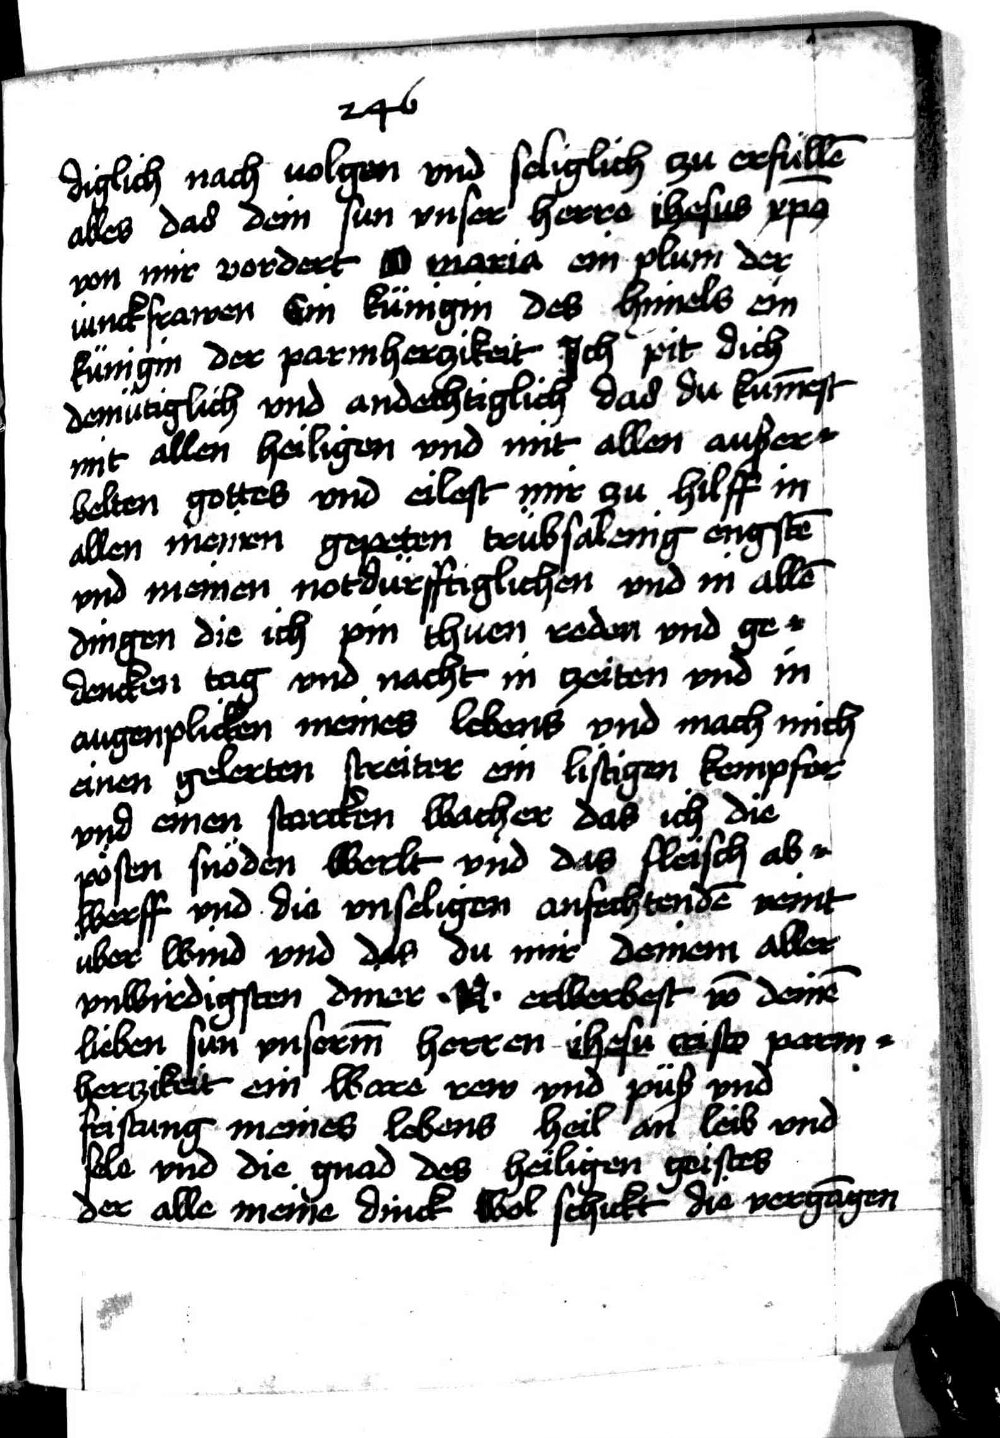 246
diglich nach uolgen vnd seliglich zu erfüllē
alles das dein sun vnser herre ihesus xp̄s
von mir vordert O maria ein plum der
iunckfrawen Ein künigin des himels ein
künigin der parmherczikeit Ich pit dich
demütiglich vnd andechtiglich das du kum̄est
mit allen heiligen vnd mit allen außer=
belten gottes vnd eilest mir zu hilff in
allen meinen gepeten trübsalenig engstē
vnd meinen notdürfftiglichen vnd in allē
dingen die ich pin thuen reden vnd ge=
dencken tag vnd nacht in zeiten vnd in
augenplicken meines lebens vnd mach mich
einen gelerten streiter ein listigen kempfer
vnd einen starcken wacher das ich die
pösen snöden werlt vnd das fleisch ab=
werff vnd die vnseligen anfechtendē veint
uber wind vnd das du mir deinem aller
vnwirdigsten diner .N. erwerbest vō deinē
lieben sun vnserm̄ herren ihesu cristo parm=
herczikeit ein ware rew vnd püß vnd
fristung meines lebens heil an leib vnd
sele vnd die gnad des heiligen geistes
der alle meine dinck wol schickt die vergāgen